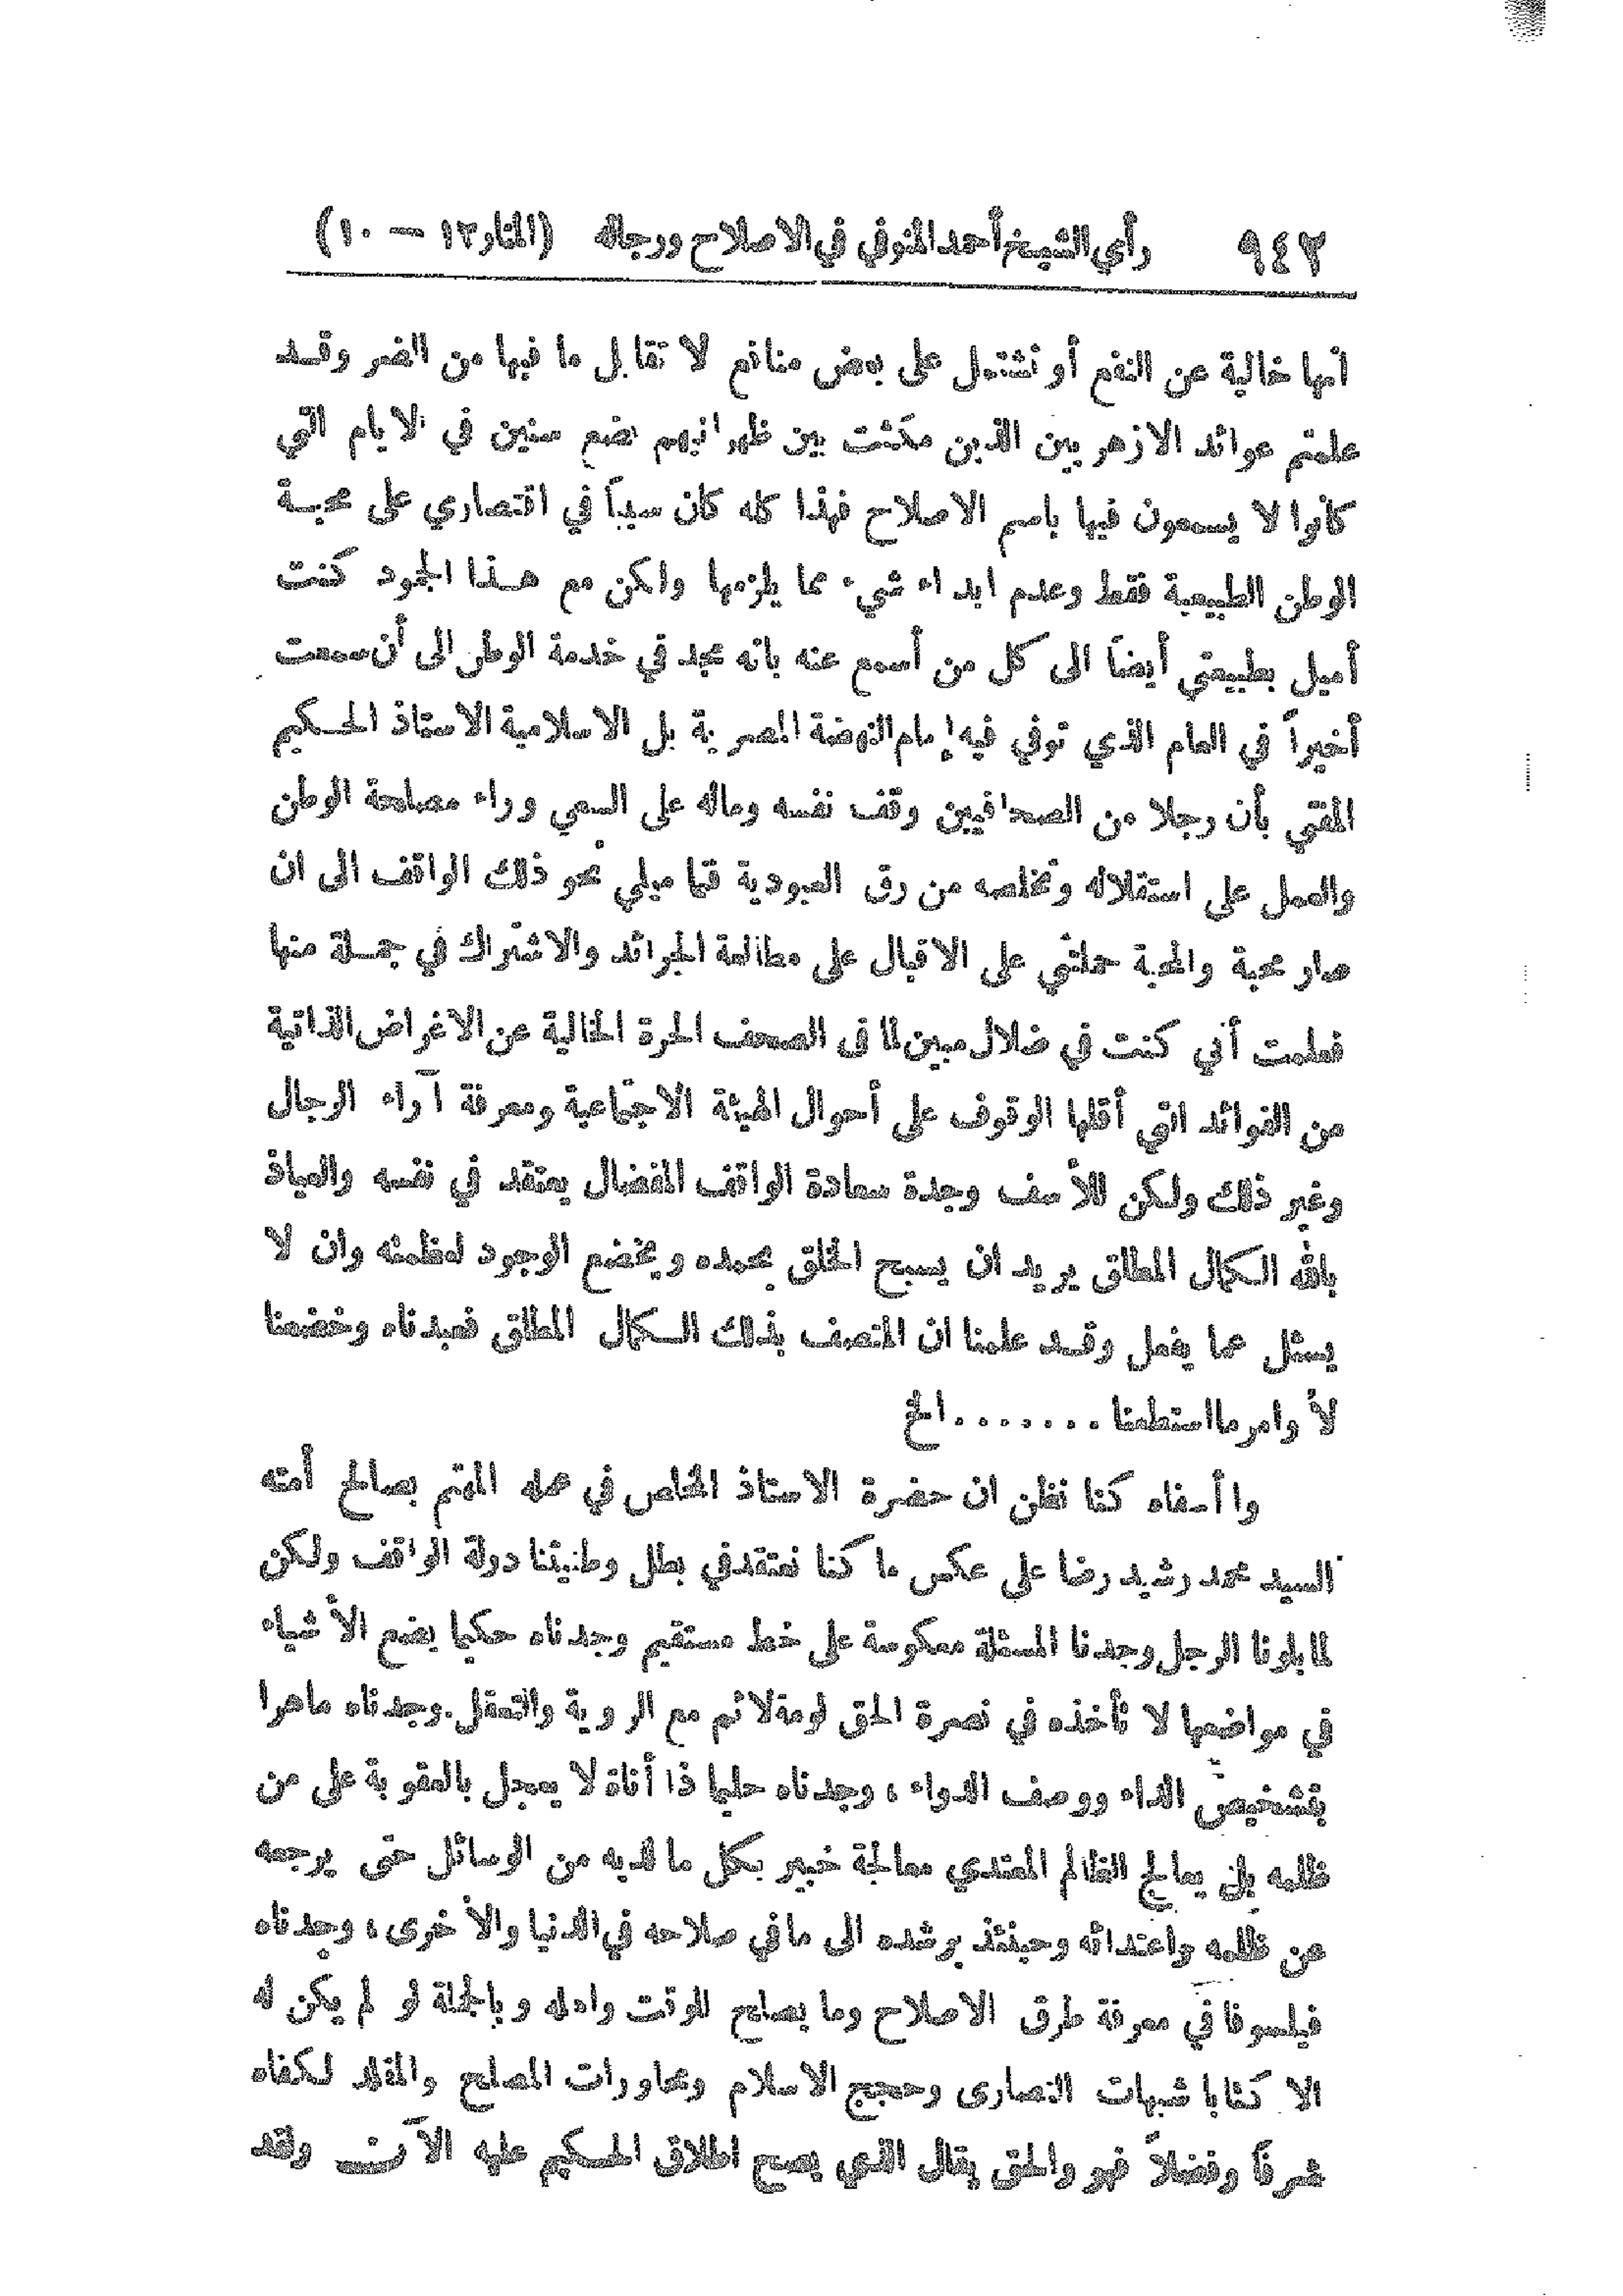 ٩٤٢ رأي الشيخ أحمد المنوفي في الاصلاح ورجاله (المنار ١٢ — ١٠)
انها خالية عن النفع أو تشتمل على بعض منافع لا تقابل ما فيها من الضر وقد
علمتم عوائد الازهر بين الذين مكثت بين ظهرانيهم بضع سنين في الايام التي
كانوا لا يسمعون فيها باسم الاصلاح فهذا كله كان سبباً في اقتصاري على محبة
الوطن الطبيعية فقط وعدم ابداء شيء مما يلزمها ولكن مع هذا الجمود كنت
أميل بطبيعتي أيضاً الى كل من أسمع عنه بانه مجد في خدمة الوطن الى أن سمعت
أخيراً في العام الذي توفي فيه إمام النهضة المصرية بل الاسلامية الاستاذ الحكيم
المفتي بأن رجلا من الصحافيين وقف نفسه وماله على السعي وراء مصلحة الوطن
والعمل على استقلاله وتخلصه من رق العبودية فنما ميلي نحو ذلك الواقف الى ان
صار محبة والمحبة حملتني على الاقبال على مطالعة الجرائد والاشتراك في جملة منها
فعلمت أني كنت في ضلال مبين لما في الصحف الحرة الخالية عن الاغراض الذاتية
من الفوائد التي أقلها الوقوف على أحوال الهيئة الاجتماعية ومعرفة آراء الرجال
وغير ذلك ولكن للأسف وجدة سعادة الواقف المفضال يعتقد في نفسه والعياذ
بالله الكمال المطلق يريد ان يسبح الخلق بحمده ويخضع الوجود لعظمته وان لا
يسئل عما يفعل وقد علمنا ان المتصف بذلك الكمال المطلق فعبدناه وخضعنا
لأوامر ما استطعنا ........ الخ
وا أسفاه كنا نظن ان حضرة الاستاذ المخلص في عمله المهتم بصالح أمته
السيد محمد رشيد رضا على عكس ما كنا نعتقد في بطل وطنيتنا دولة الواقف ولكن
لما بلونا الرجل وجدنا المسئلة معكوسة على خط مستقيم وجدناه حكيما يضع الأشياء
في مواضعها لا تأخذه في نصرة الحق لومة لائم مع الروية والتعقل. وجدناه ماهرا
بتشخيص الداء ووصف الدواء ، وجدناه حليما ذا أناة لا يعجل بالعقوبة على من
ظلمه بل يعالج الظالم المعتدي معالجة خبير بكل ما لديه من الوسائل حتى يرجعه
عن ظلمه واعتدائه وحينئذ يرشده الى ما في صلاحه في الدنيا والأخرى ، وجدناه
فيلسوفا في معرفة طرق الاصلاح وما يصلح للوقت واهله وبالجملة لو لم يكن له
الا كتابا شبهات النصارى وحجج الاسلام ومحاورات المصلح والمقلد لكفاه
شرفاً وفضلاً فهو والحق يقال الذي يصح اطلاق الحكيم عليه الآن ولقد